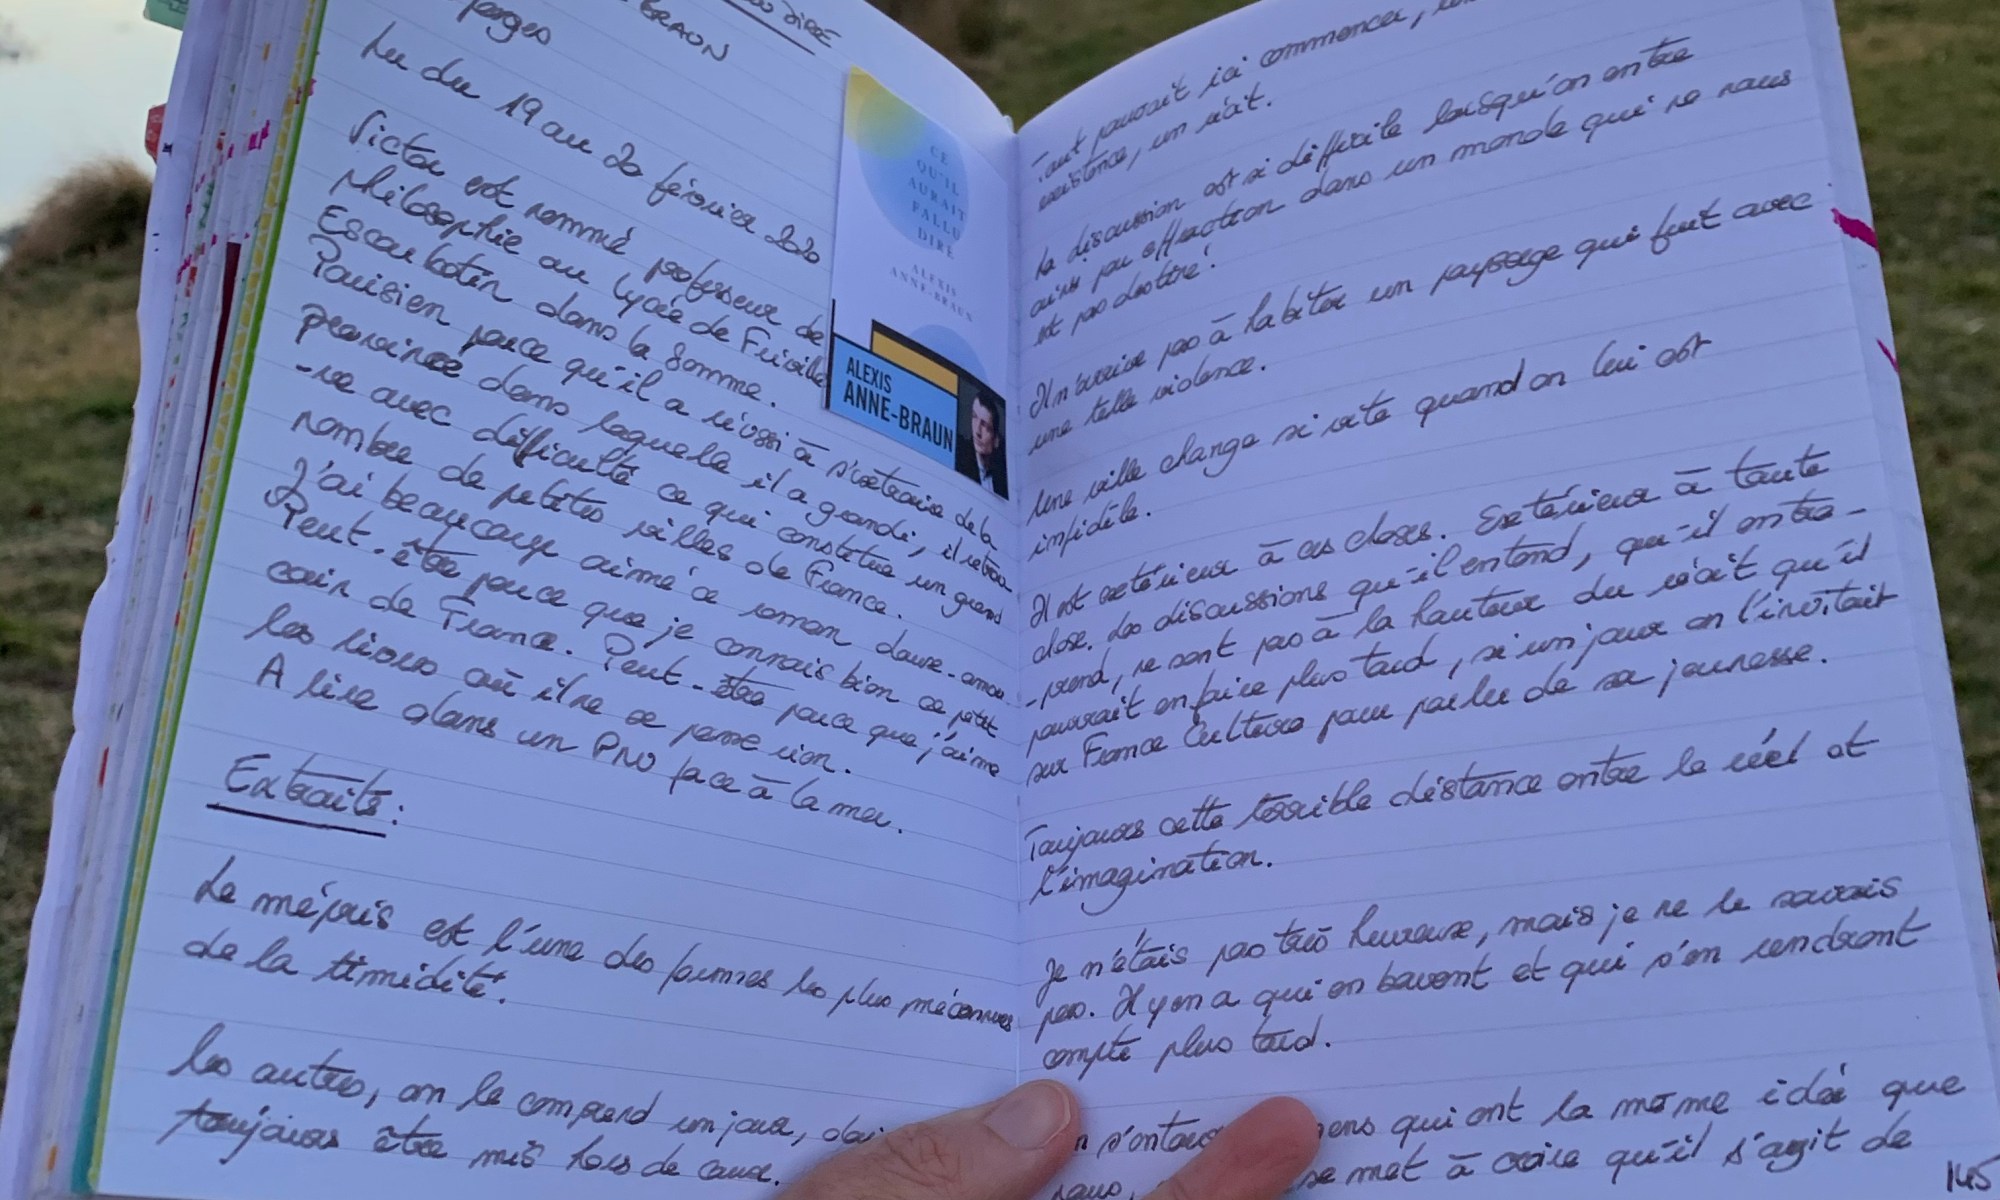 DIRE
BRAUN
Lu du 19 au 20 février 2020
Victor est nommé professeur de
philosophie au lycée de Friville
Escarbotin dans la Somme.
Parisien parce qu'il a réussi à s'extraire de la
province dans laquelle il a grandi, il retrou
-ve avec difficulté ce qui constitue un grand
nombre de petites villes de France.
J'ai beaucoup aimé ce roman doux-amer.
Peut-être parce que je connais bien ce petit
coin de France. Peut-être parce que j'aime
les livres où il ne se passe rien.
A lire dans un PMU face à la mer.
Extraits :
Le mépris est l'une des formes les plus méconnues
de la timidité.
Les autres, on le comprend un jour,
toujours être mis hors de cause.
CE
QU'IL
AURAIT
FALLU
DIRE
ALEXIS
ANNE-BRAUN
ALEXIS
ANNE-BRAUN
Tout pourrait ici commencer,
existence, un récit.
La discussion est si difficile lorsqu'on entre
ainsi par effraction dans un monde qui ne nous
est pas destiné !
Il n'arrive pas à habiter un paysage qui fuit avec
une telle violence.
Une ville change si vite quand on lui est
infidèle.
Il est extérieur à ces choses. Extérieur à toute
chose. Les discussions qu'il entend, qu'il entre-
-prend, ne sont pas à la hauteur du récit qu'il
pourrait en faire plus tard, si un jour on l'invitait
sur France Culture pour parler de sa jeunesse.
Toujours cette terrible distance entre le réel et
l'imagination.
Je n'étais pas très heureuse, mais je ne le savais
pas. Il y en a qui en bavent et qui s'en rendront
compte plus tard.
s'entoure gens qui ont la même idée que
nous, se met à croire qu'il s'agit de
145